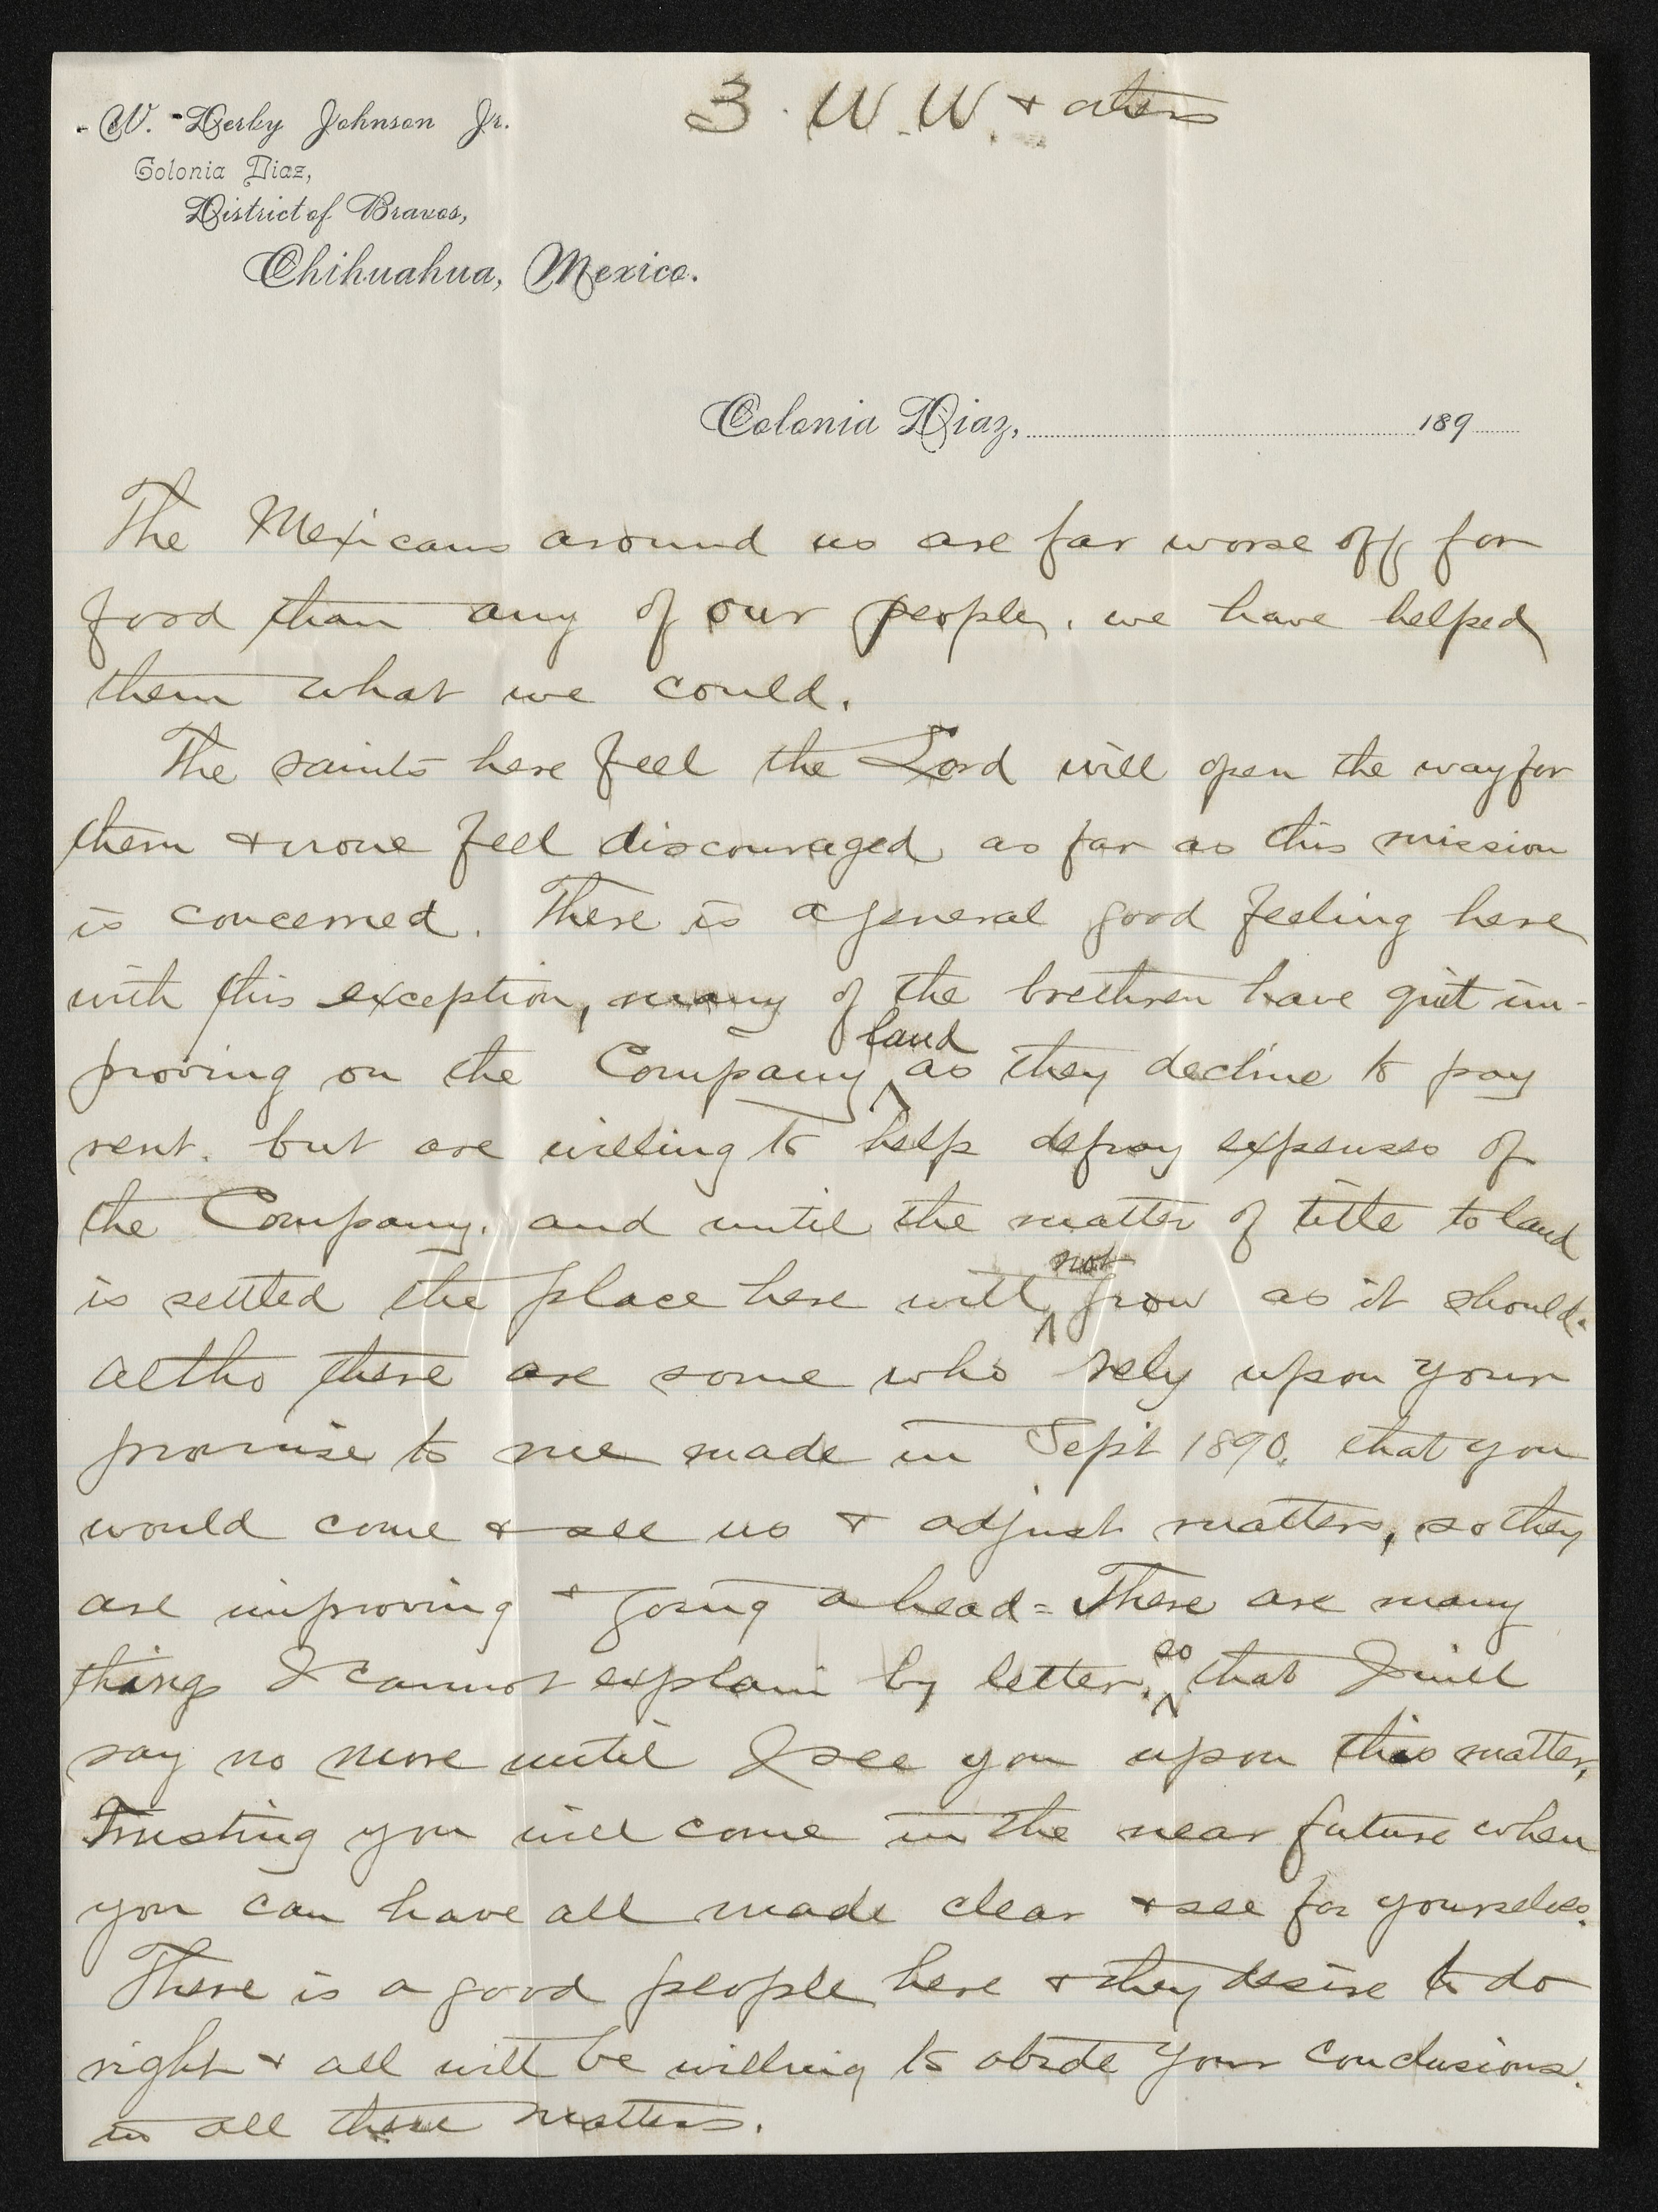 3. W. W. + others
W. Derby Johnson Jr.
Colonia Diaz,
District of Bravos,
Chihuahua, Mexico.
Colonia Diaz, 189
The Mexicans around us are far worse off for
food than any of our people. we have helped
them what we could.
The saints here feel the Lord will open the way for
them + none feel discouraged as far as this mission
is concerned. There is a general good feeling here
with this exception, many of the brethren have quit im-
proving on the Company land as they decline to pay
rent. but are willing to help defray expenses of
the Company. and until the matter of title to land
is settled the place here will not grow as it should.
altho there are some who rely upon your
promise to me made in Sept 1890. that you
would come + see us + adjust matters, so they
are improving + going ahead = There are many
things I cannot explain by letter. so that I will
say no more until I see you upon this matter,
Trusting you will come in the near future when
you can have all made clear + see for yourselves.
There is a good people here + they desire to do
right + all will be willing to abide your conclusions.
in all these matters.